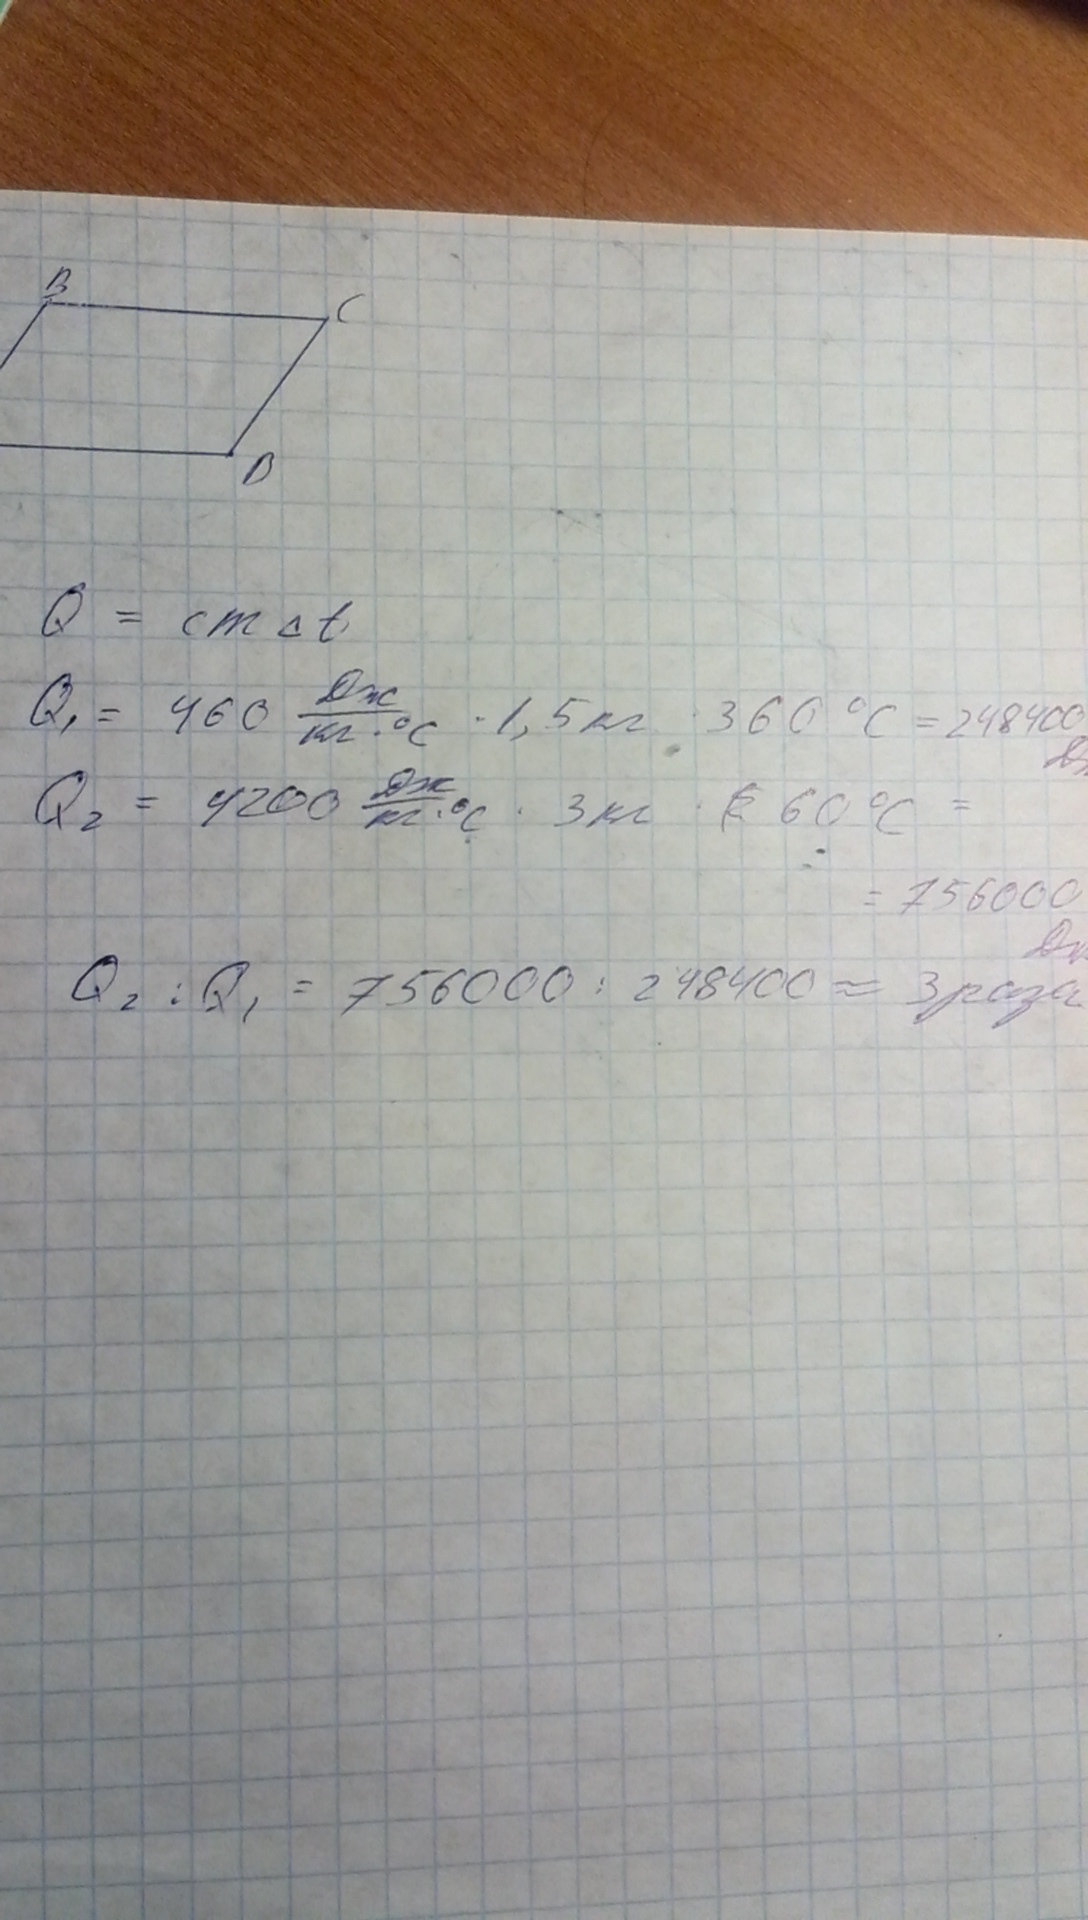 B
C
D
Q = cm Δt
Q₁ = 460 Дж/кг·°C · 1,5 кг · 360 °C = 248400
Дж
Q₂ = 4200 Дж/кг·°C · 3 кг · 60 °C =
= 756000
Дж
Q₂ : Q₁ = 756000 : 248400 ≈ 3 раза